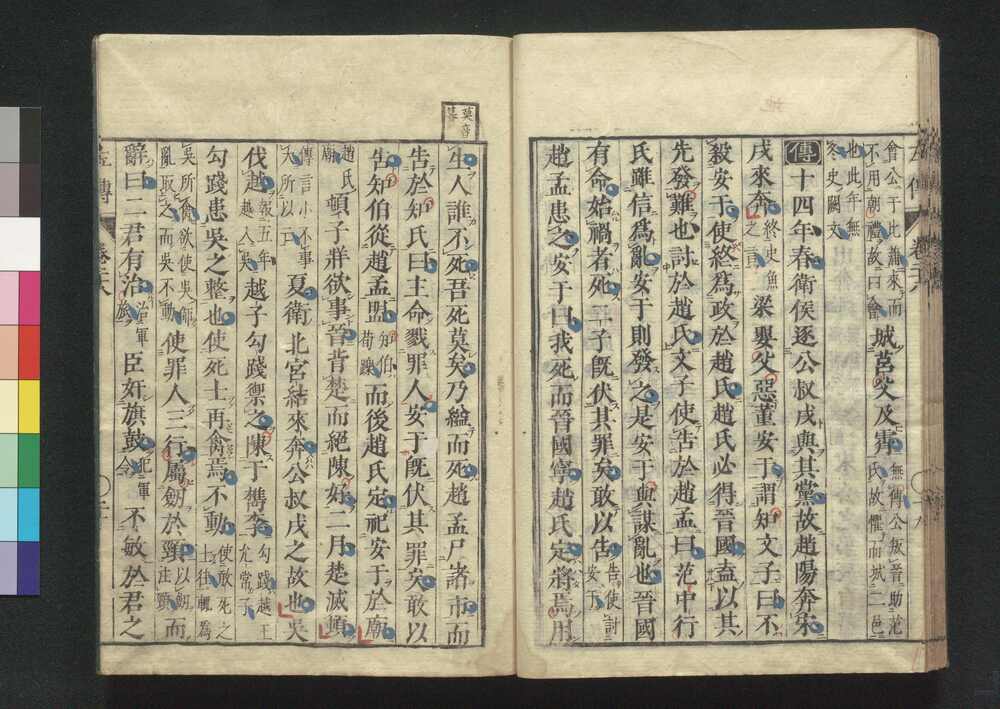 會公于比蒲來而
不用朝禮故曰會
城莒父及霄
無傳公叛晉助范
氏故懼而城二邑
也此年無
冬史闕文
傳十四年春衛侯逐公叔戌與其黨故趙陽奔宋
戌來奔
終史魚
之言
梁嬰父惡董安于謂知文子曰不
殺安于使終爲政於趙氏趙氏必得晉國盍以其
先發難也討於趙氏文子使告於趙孟曰范中行
氏雖信爲亂安于則發之是安于與謀亂也晉國
有命始禍者死二子旣伏其罪矣敢以告
告使討
安于
趙孟患之安于曰我死而晉國寧趙氏定將焉用
莫音
暮
生人誰不死吾死莫矣乃縊而死趙孟尸諸市而
告於知氏曰主命戮罪人安于旣伏其罪矣敢以
告知伯從趙孟盟
知伯
荀躒
而後趙氏定祀安于於廟
趙氏
廟
頓子牂欲事晉背楚而絕陳好二月楚滅頓
傳言小不事
大所以亡
夏衛北宮結來奔公叔戌之故也吳
伐越
報五年
越入吳
越子勾踐禦之陳于檇李
勾踐越王
允常子
勾踐患吳之整也使死士再禽焉不動
使敢死之
士往輒爲
吳所禽欲使吳師
亂取之而吳不動
使罪人三行屬劒於頸
以劒
注頸
而
辭曰二君有治
治軍
旅
臣奸旗鼓
犯軍
令
不敏於君之
左傳